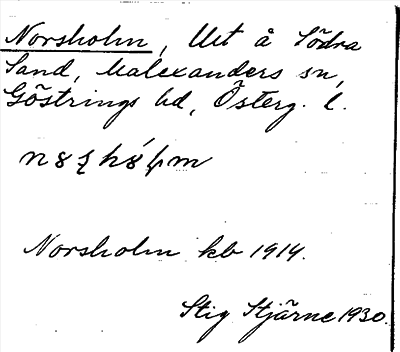 Norsholm, Utt å Södra
Sand, Malexanders sn,
Göstrings hd, Österg. l.
Norsholm kb 1914.
Stig Stjärne 1930.